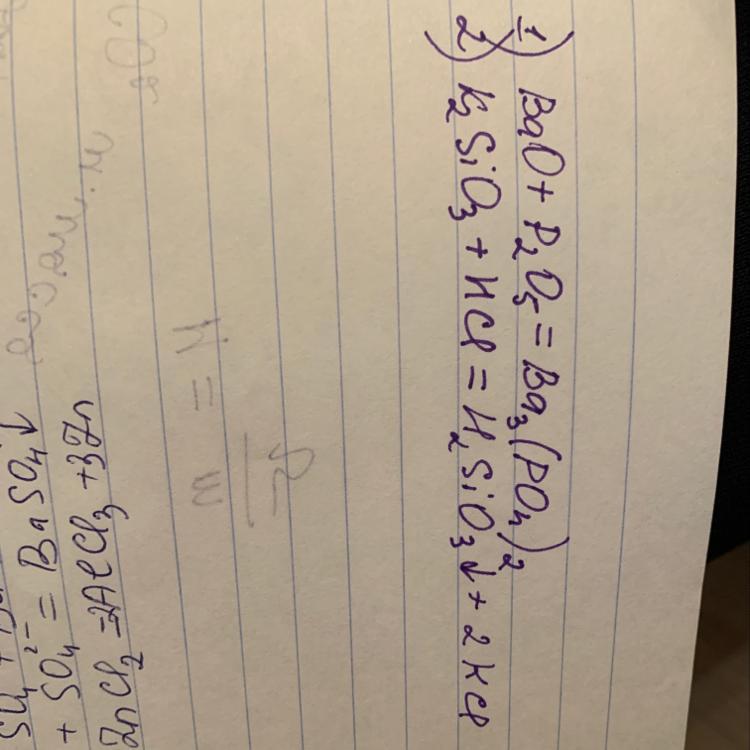 1) BaO + P₂O₅ = Ba₃(PO₄)₂
2) K₂SiO₃ + HCl = H₂SiO₃↓ + 2KCl
+ SO₄²⁻ = BaSO₄↓
ZnCl₂ = 2AlCl₃ + 3Zn